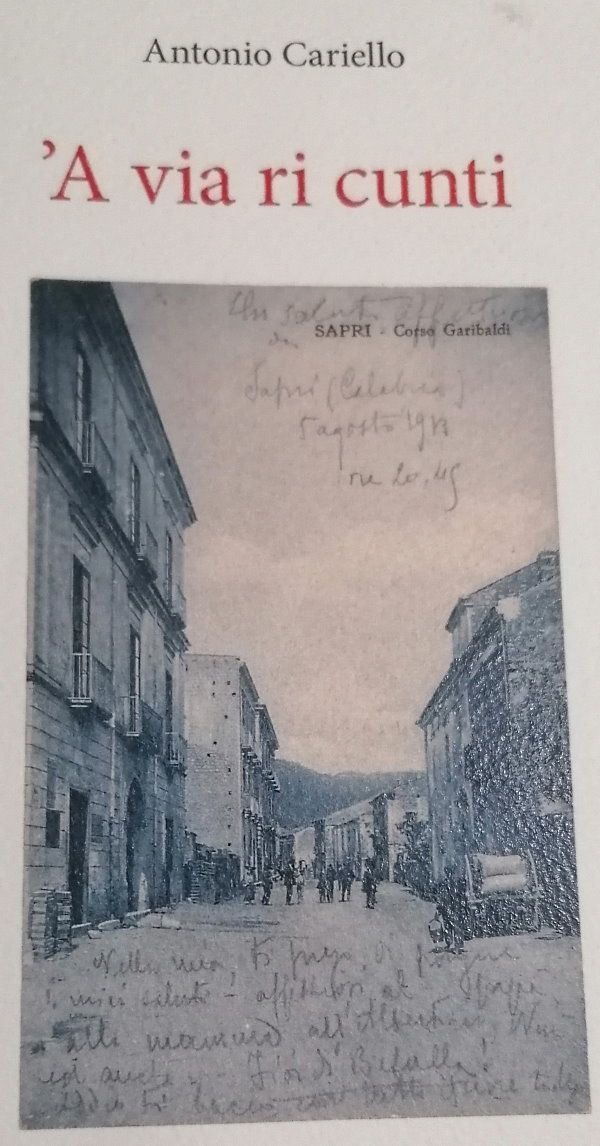 Antonio Cariello
'A via ri cunti
Un saluto affettuoso
SAPRI - Corso Garibaldi
da
Sapri (Calabria)
5 agosto 1913
ore 20.45
Nella mia, ti prego di porgere
i miei saluti affettuosi al
alla mamma all'
ed anche
ti bacio con tutto